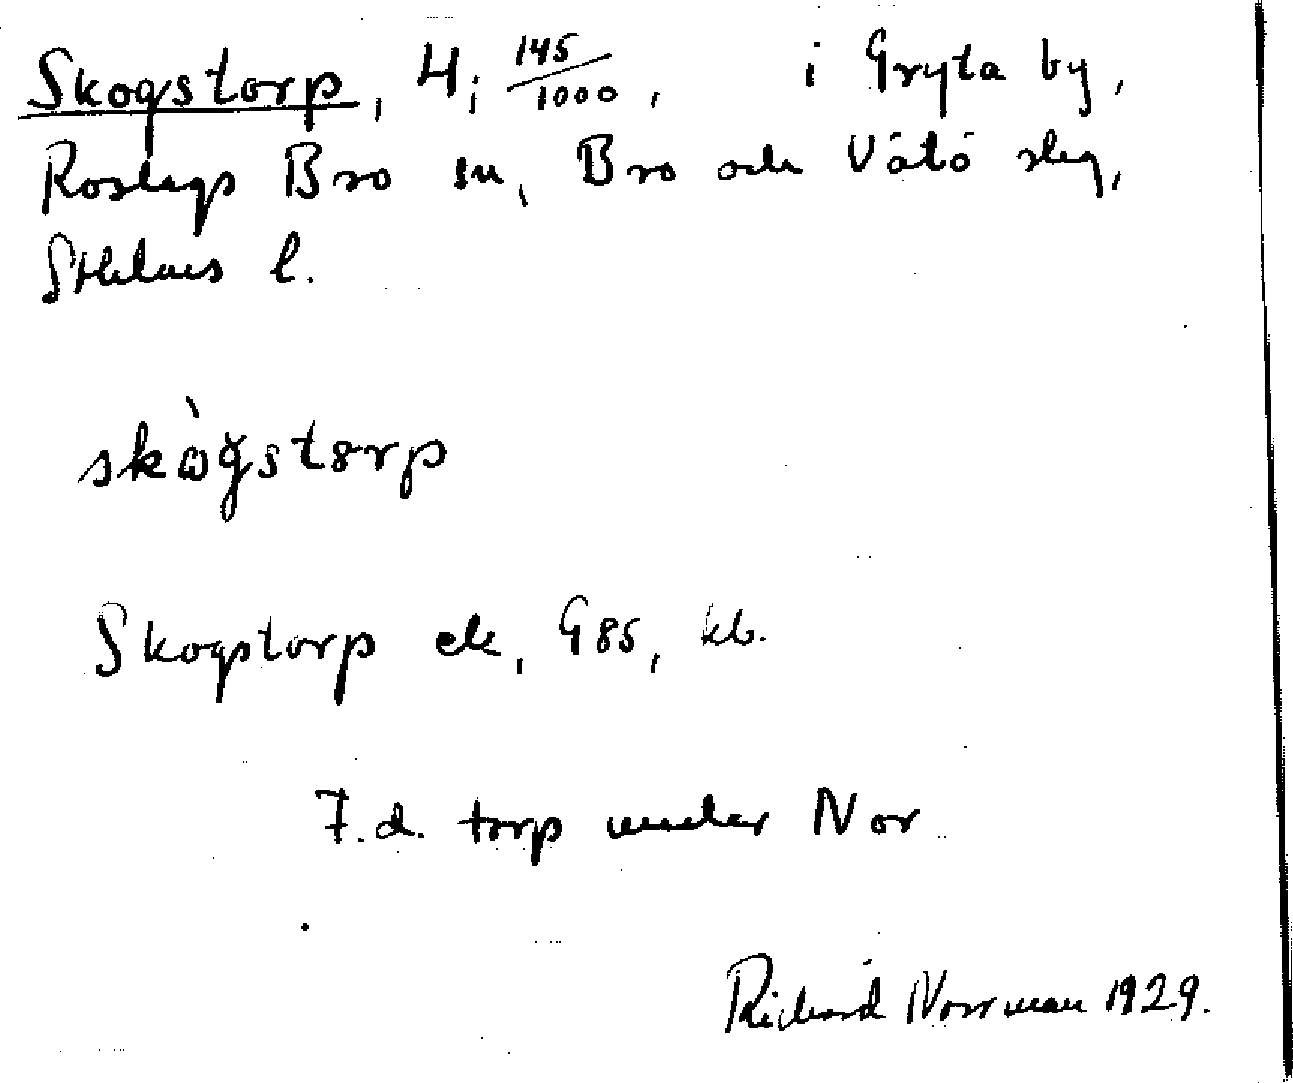 Skogstorp, 4; 145/1000, i Gryta by,
Roslags Bro sn, Bro och Vätö skg,
Sthlms l.
skògstørp
Skogstorp ek, G85, kb.
F.d. torp under Nor
Richard Norrman 1929.